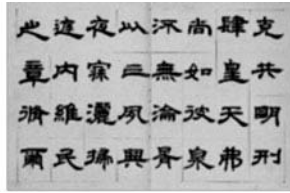 克共明刑
肆皇天弗
尚如彼泉
流無淪胥
以亡夙興
夜寐灑掃
廷內維民
之章脩爾